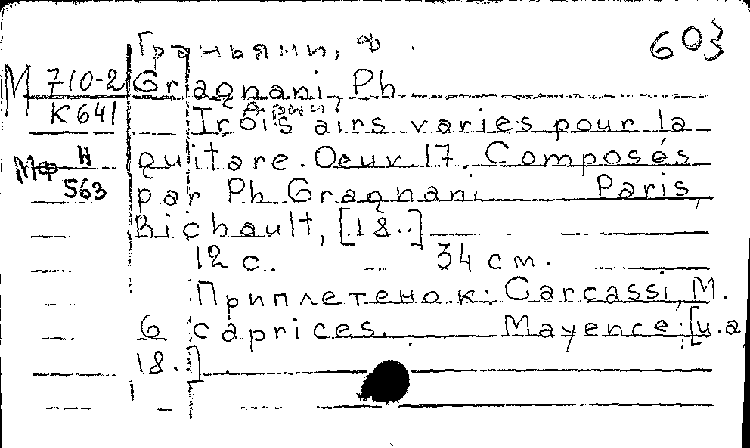 603
Граньяни, Ф.
М 710-2 Gragnani, Ph
К 641
Trois airs varies pour la
Мф Н
563
guitare. Oeuv. 17. Composés
par Ph Gragnani Paris,
Richault, [18..]
12 с. 34 см.
Приплетено к: Carcassi, M.
6 caprices. Mayence: [u.a.
18..]